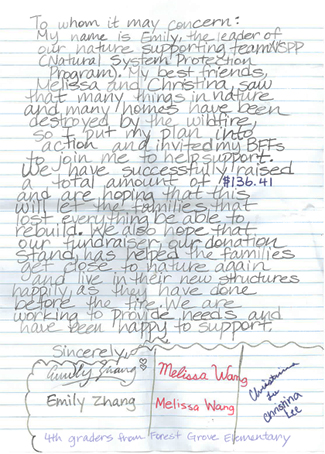 To whom it may concern:
My name is Emily, the leader of
our nature supporting team NSPP
(Natural System Protection
Program). My best friends,
Melissa and Christina saw
that many things in nature
and many homes have been
destroyed by the wildfire,
so I put my plan into
action and invited my BFFs
to join me to help support.
We have successfully raised
a total amount of $136.41
and are hoping that this
will let the families that
lost everything be able to
rebuild. We also hope that
our fundraiser, our donation
stand, has helped the families
get close to nature again
and live in their new structures
happily as they have done
before the fire. We are
working to provide needs and
have been happy to support.
Sincerely,
Emily Zhang Melissa Wang Christina Lee
Emily Zhang Melissa Wang Christina Lee
4th graders from Forest Grove Elementary